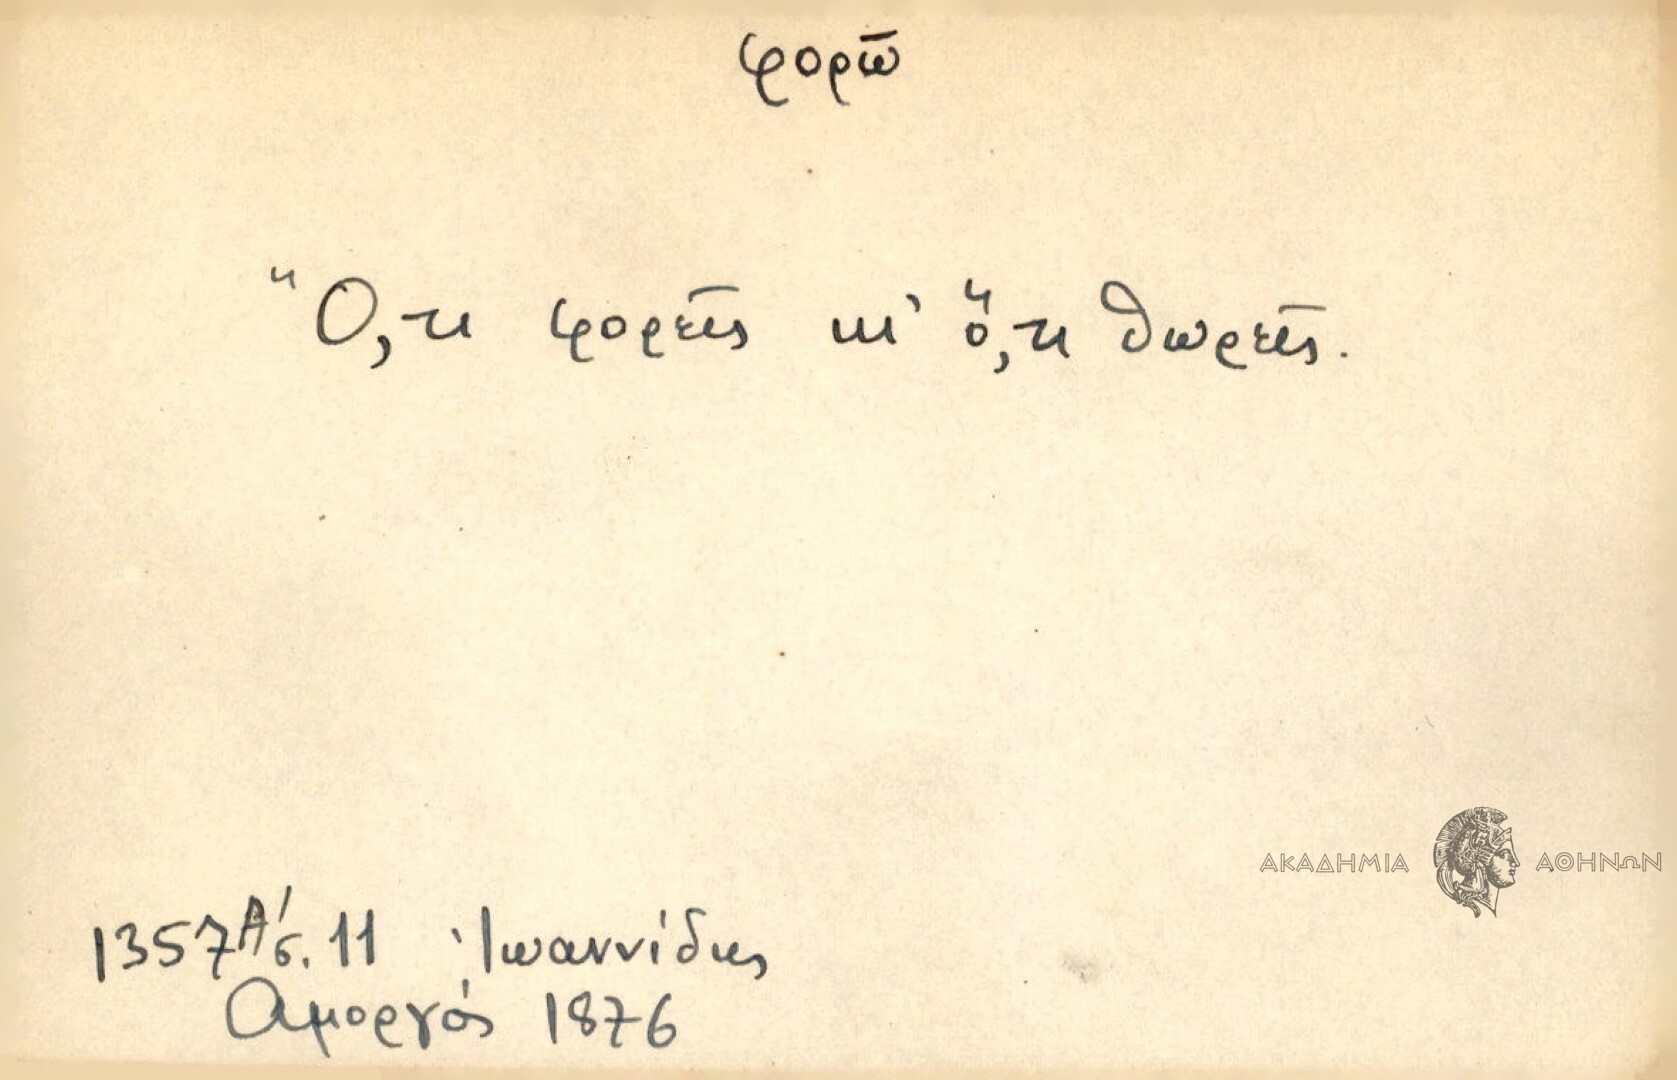 φορῶ
Ὅ,τι φορεῖς κι' ὅ,τι θωρεῖς.
ΑΚΑΔΗΜΙΑ ΑΘΗΝΩΝ
1357 Α' σ. 11 Ἰωαννίδης
Αμοργός 1876